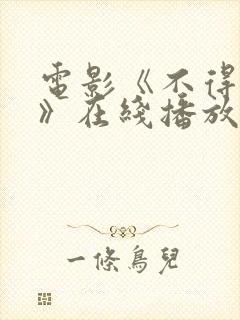 電影《不得
》在綫播放
一條鳥兒